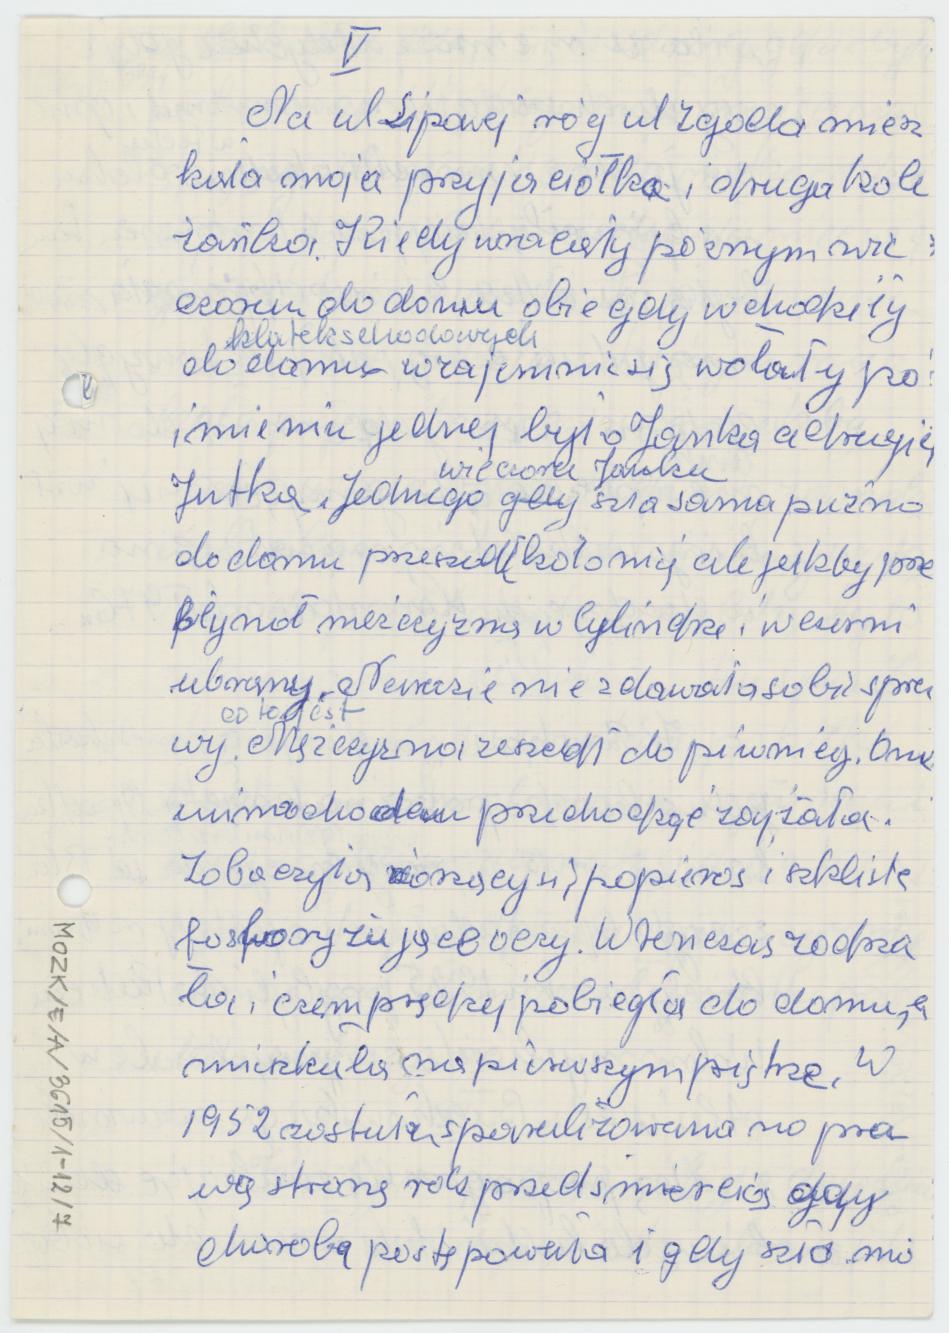 V
Na ul Lipowej róg ul Zgoda miesz
kała moja przyjaciółka i druga kole
żanka. Kiedy wracały póznym wie
czorem do domu obie gdy wchodziły
klatek schodowych
do domu wzajemnie się wołały po
imieniu jednej było Janka a drugiej
wieczora Janka
Jutka. Jednego gdy szła sama puźno
do domu przeszedł koło niej ale jakby prze
płynoł mężczyzna w Cylindrze i w czerni
ubrany. Narazie nie zdawała sobie spra
co to jest
wy. Mężczyzna zeszedł do piwnicy. Ona
mimochodem przechodząc zajżała.
Zobaczyła żarzący się papieros i szkliste
fosforyzujące oczy. Wtenczas zadrża
ła i czemprędzej pobiegła do domu, a
mieszkała na pierwszym piętrze. W
1952 została sparaliżowana na pra
wą stronę rok przed śmiercią gdy
choroba postępowała i gdy szła na
MOZK/EA/BG15/1-12/7